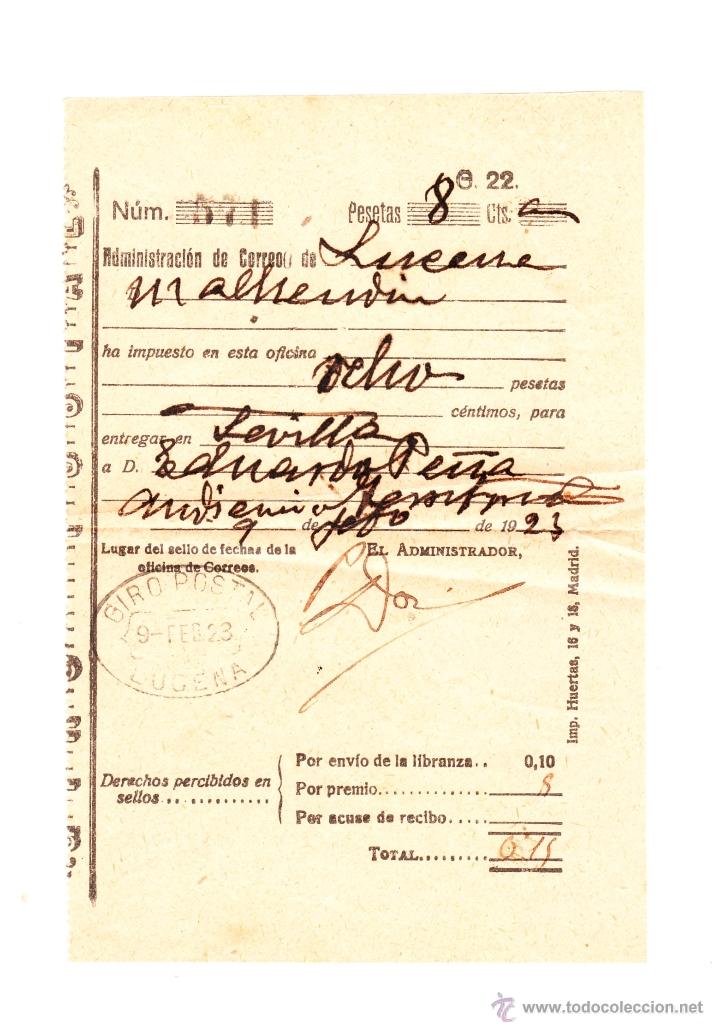 G. 22.
Núm. 571 Pesetas 8 Cts.
Administración de Correos de Lucena
ha impuesto en esta oficina ocho pesetas
céntimos, para
entregar en Sevilla
a D. Eduardo Peña
9 de Febo de 1923
Lugar del sello de fechas de la
oficina de Correos.
EL ADMINISTRADOR,
GIRO POSTAL
9-FEB.23
LUCENA
Imp. Huertas, 16 y 18, Madrid.
Derechos percibidos en
sellos
Por envío de la libranza.. 0,10
Por premio
Por acuse de recibo
TOTAL
www.todocoleccion.net